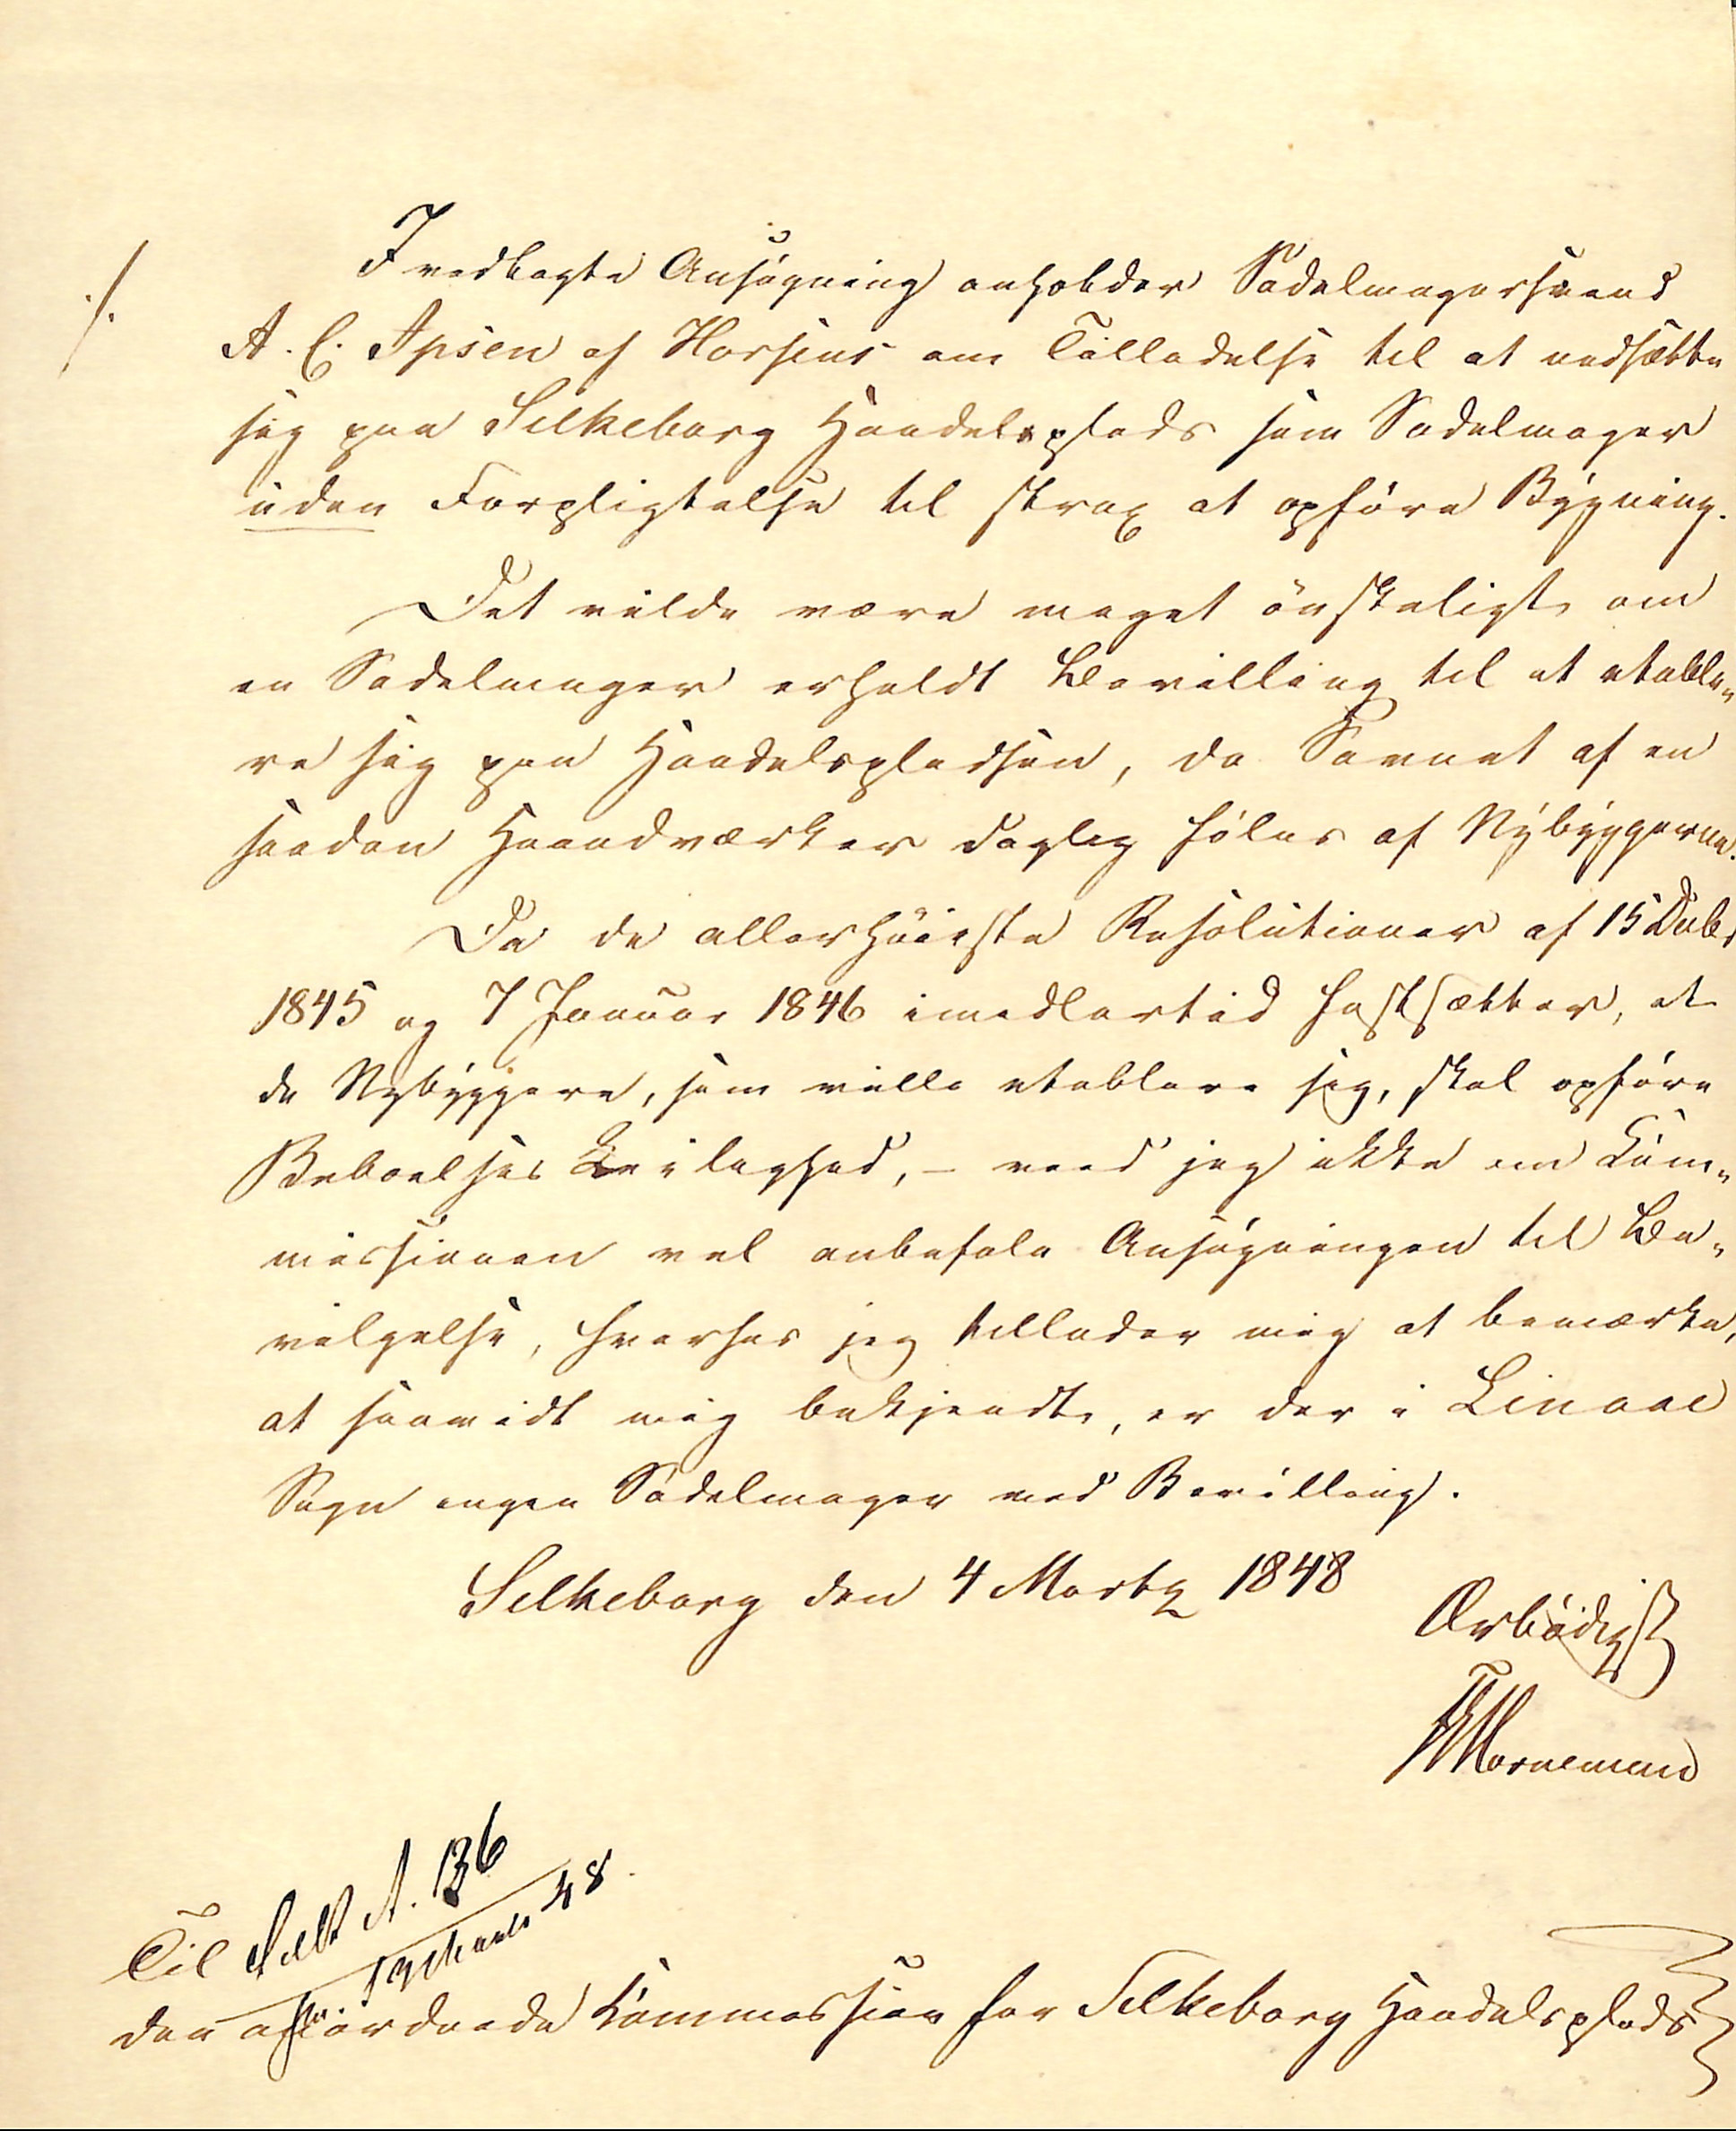 ./.
I vedlagte Ansøgning anholder Sadelmagersvend
A. C. Ipsen af Horsens om Tilladelse til at nedsætte
sig paa Silkeborg Handelsplads som Sadelmager
uden Forpligtelse til strax at opføre Bygning.
Det vilde være meget ønskeligt om
en Sadelmager erholdt Bevilling til at etable„
re sig paa Handelspladsen, da Savnet af en
saadan Haandværker daglig føles af Nybyggerne.
Da de allerhøieste Resolutioner af 15 Decbr
1845 og 7 Januar 1846 imedlertid fastsætter, at
de Nybyggere, som ville etablere sig, skal opføre
Beboelses Leileghed, – veed jeg ikke om Com„
missionen vel anbefale Ansøgningen til Be„
vilgelse, hvorhos jeg tillader mig at bemærke,
at saavidt mig bekjendt, er der i Linaae
Sogn ingen Sadelmager med Bevilling.
Silkeborg den 4 Marts 1848
Ærbødigst
Hornemann
Silk A. 136
48.
Til
den anordnede Commission for Silkeborg Handelsplads